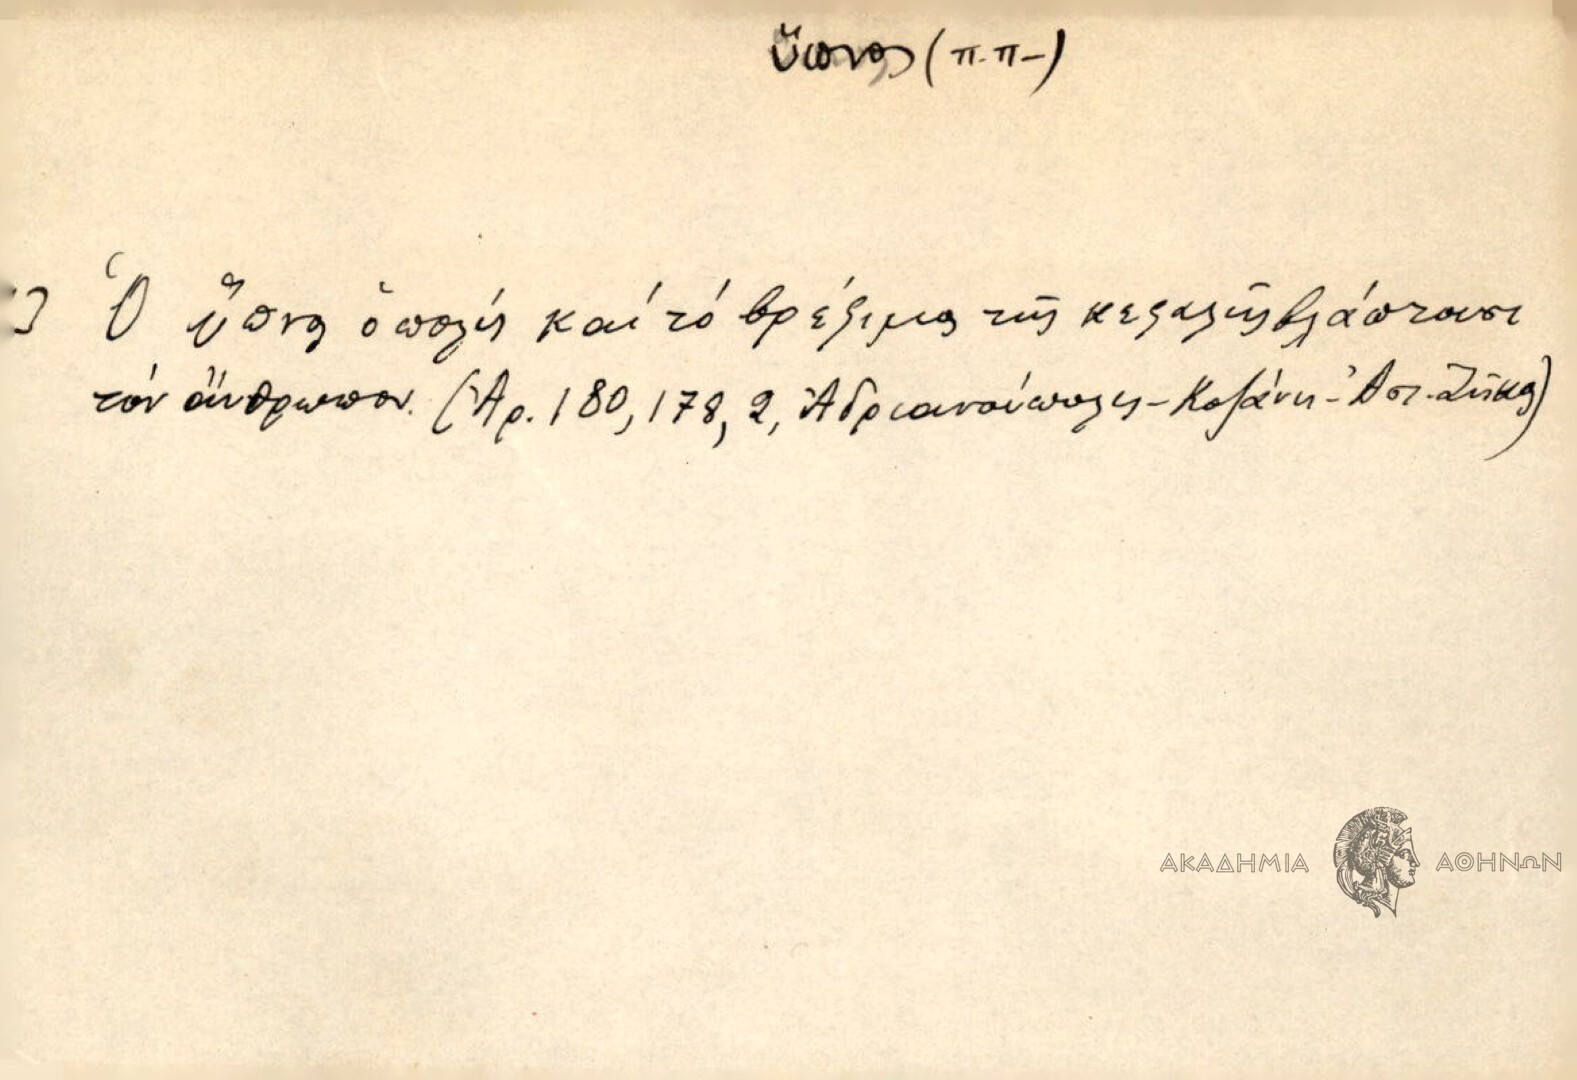 ὕπνος (π.π-)
Ὁ ὕπνος ὁ πολύς καί τό βρέξιμο τῆς κεφαλῆς βλάπτουσι
τόν ἄνθρωπον. (Ἀρ. 180, 178, 2, Ἀδριανούπολις - Κοζάνη - Ἀστ. Ζήκος)
ΑΚΑΔΗΜΙΑ ΑΘΗΝΩΝ